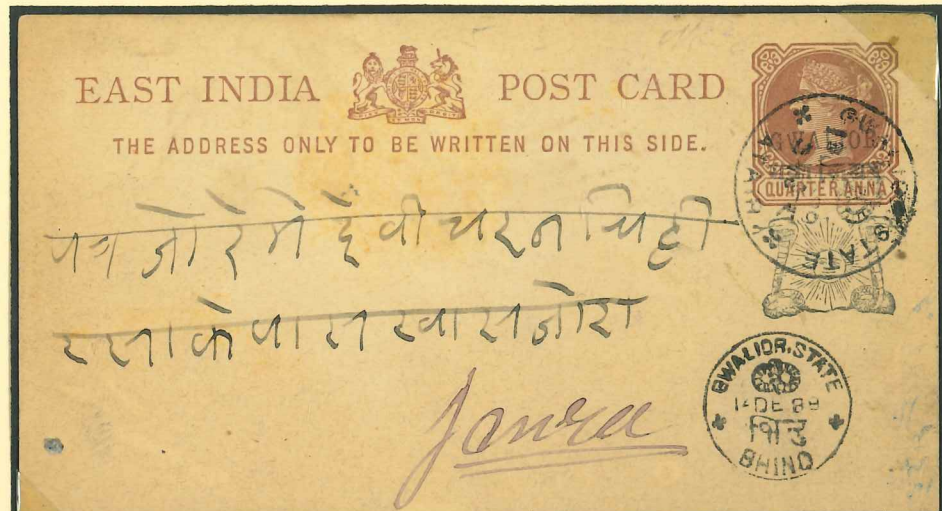 EAST INDIA POST CARD
THE ADDRESS ONLY TO BE WRITTEN ON THIS SIDE.
GWALIOR
QUARTER ANNA
STATE
पत्र जोरे मे देवी चरन चिट्ठी
रसा के पास खास जोरा
Jowra
GWALIOR STATE
DE 89
भिंड
BHIND